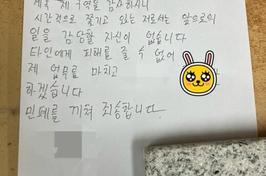 계속 제 구역을 감소하시니
시간적으로 쫓기고 있는 저로서는 앞으로의
일을 감당할 자신이 없습니다
타인에게 피해를 줄 수 없어
제 업무를 마치고
하겠습니다
민폐를 끼쳐 죄송합니다.